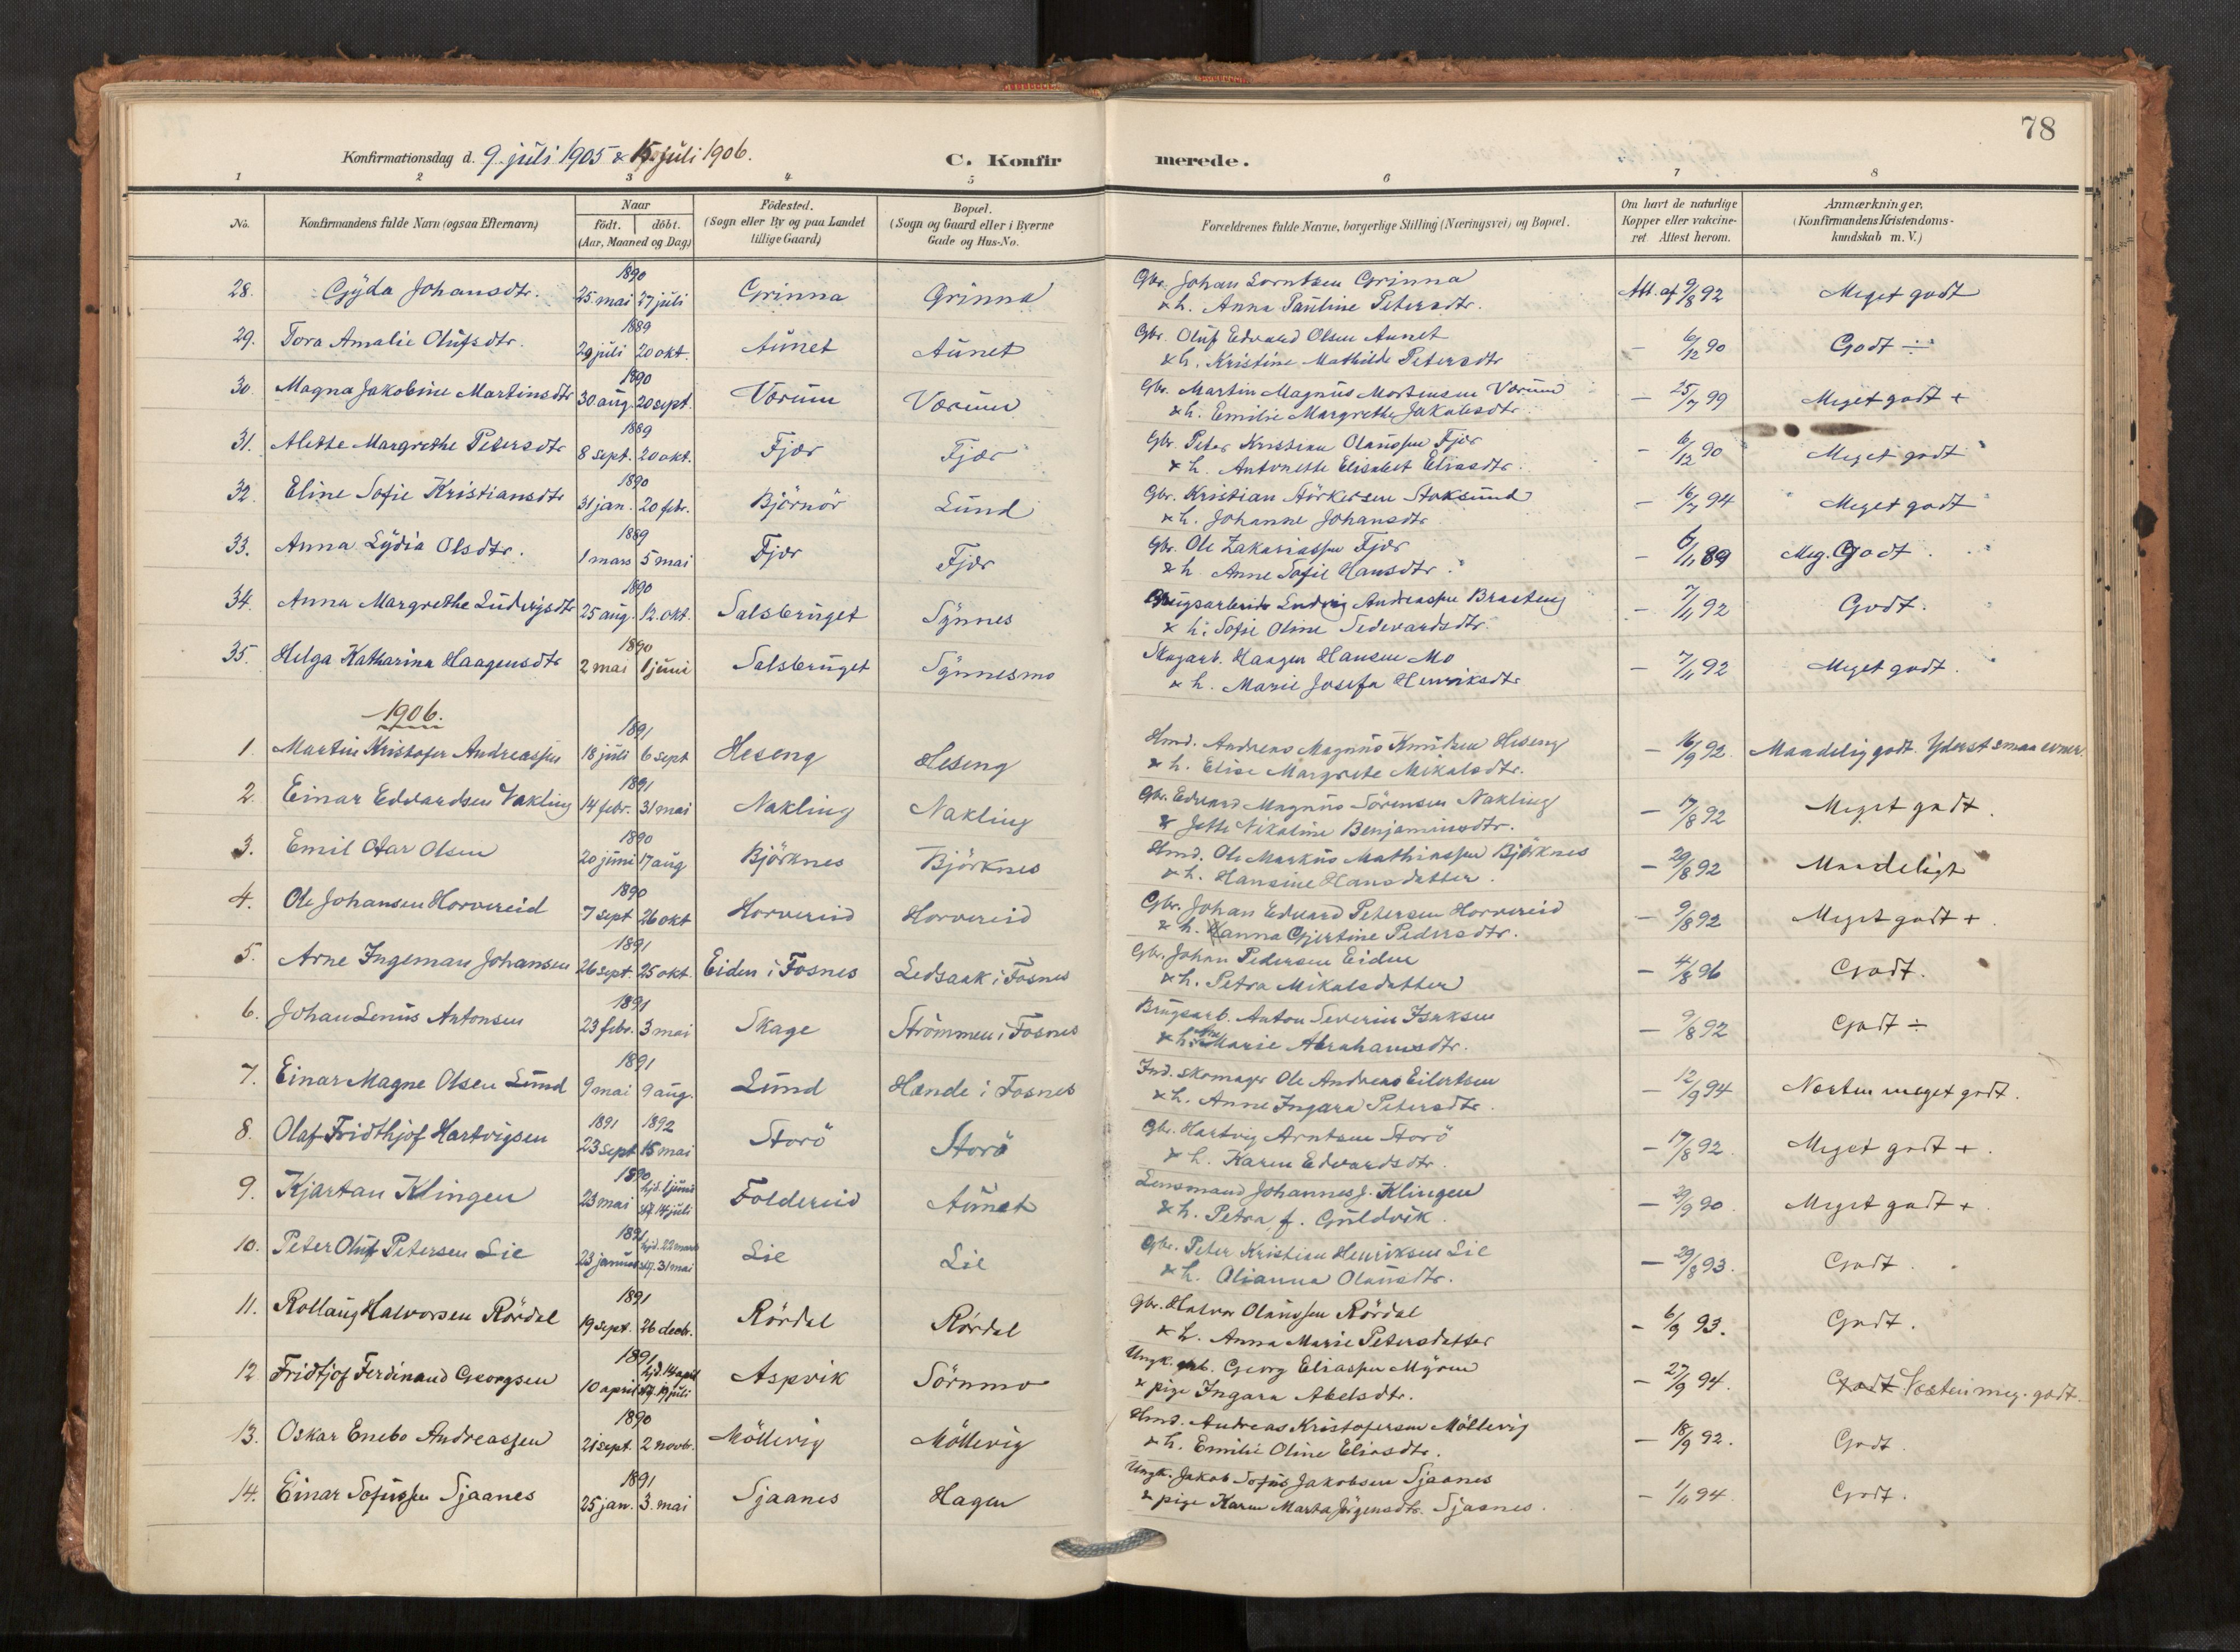 78
Konfirmationsdag d. 9. juli 1905 & 15. juli 1906.
C. Konfirmerede.
1 2 3 4 5 6 7 8
No.
Konfirmandens fulde Navn (ogsaa Efternavn)
Naar
födt. döbt.
(Aar, Maaned og Dag)
Födested.
(Sogn eller By og paa Landet
tillige Gaard)
Bopæl.
(Sogn og Gaard eller i Byerne
Gade og Hus-No.
Forældrenes fulde Navne, borgerlige Stilling (Næringsvei) og Bopæl.
Om havt de naturlige
Kopper eller vakcine-
ret. Attest herom.
Anmærkninger,
(Konfirmandens Kristendoms-
kundskab m. V.)
1890
28. Gyda Johansdtr. 25. mai 27 juli Grinna Grinna Gbr. Johan Lorntsen Grinna
& h. Anna Pauline Petersdtr. Att. af 9/8 92 Meget godt
1889
29. Tora Amalie Olufsdtr. 29 juli 20 okt. Aunet Aunet Gbr. Oluf Edvard Olsen Aunet
& h. Kristine Mathilde Petersdtr – 6/12 90 Godt ÷
1890
30. Magna Jakobine Martinsdtr 30 aug. 20 sept. Værum Værum Gbr. Martin Magnus Mortensen Værum
& h. Emilie Margrethe Jakobsdtr – 25/7 99 Meget godt +
1889
31. Alette Margrethe Petersdtr 8 sept. 20 okt. Fjær Fjær Gbr. Peter Kristian Olaussen Fjær
& h. Antonette Elisabet Eliasdtr. – 6/12 90 Meget godt
1890
32. Eline Sofie Kristiansdtr 31 jan. 20 febr. Björnör Lund Gbr. Kristian Störkersen Stoksund
& h. Johanne Johansdtr – 16/7 94 Meget godt
1889
33. Anna Lydia Olsdtr. 1 mars 5 mai Fjær Fjær Gbr. Ole Zakariassen Fjær
& h. Anne Sofie Hansdtr. – 6/11 89 Meg. Godt.
1890
34. Anna Margrethe Ludvigsdtr 25 aug. 12. okt. Salsbruget Synnes Brugsarbeider Ludvig Andreassen
& h. Sofie Oline Sedevardsdtr. – 7/11 92 Godt.
1890
35. Helga Katharina Haagensdtr 2 mai 1 juni Salsbruget Synnesmo Skogarb. Haagen Hansen Mo
& h. Marie Josefa Henriksdtr – 7/11 92 Meget godt.
1906.
1891
1. Martin Kristofer Andreassen 18 juli 6 sept Heseng Heseng Hmd. Andreas Magnus Knudsen Heseng
& h. Elise Margrete Mikalsdtr. – 16/9 92. Maadelig godt. Yderst smaa evner.
1891
2. Einar Edvardsen Nakling 14 febr. 31 mai Nakling Nakling Gbr. Edvard Magnus Sörensen Nakling
& Jette Nikoline Benjaminsdtr. – 17/8 92 Meget godt.
1890
3. Emil Otar Olsen 20 juni 17 aug Björknes Björknes Hmd. Ole Markus Mathiassen Björknes
& h. Hansine Hansdatter. – 29/8 92 Maadeligt
1890
4. Ole Johansen Horvereid 7 sept 26 okt Horvereid Horvereid Gbr. Johan Edvard Petersen Horvereid
& h. Hanna Gjertine Pedersdtr. – 9/8 92 Meget godt +
1891
5. Arne Ingeman Johansen 26 sept. 25 okt. Eiden i Fosnes Ledsaak i Fosnes Gbr. Johan Pedersen Eiden
& h. Petra Mikalsdatter – 4/8 96 Godt.
1891
6. Johan Lenus Antonsen 23 febr. 3 mai Skage Strömmen i Fosnes Brugsarb. Anton Severin Isaksen
& h. Marie Abrahamsdtr. – 9/8 92 Godt ÷
1891
7. Einar Magne Olsen Lund 9 mai 9 aug. Lund Hænde i Fosnes Ind. skomager Ole Andreas Eilertsen
& h. Anne Ingara Petersdtr. – 12/9 94 Næsten meget godt.
1891 1892
8. Olaf Fridthjof Hartvigsen 23 sept 15 mai Storö Storö Gbr. Hartvig Arntsen Storö
& h. Karen Edvardsdtr. – 17/8 92. Meget godt +.
1890
9. Kjartan Klingen 23 mai hjd. 1 juni stf. 14 juli Foldereid Aunet Lensmand Johannes J. Klingen
& h. Petra, f. Guldvik. – 29/9 90 Meget godt +
1891
10. Peter Oluf Petersen Lie 23 januar hjd. 22 mars stf. 31 mai Lie Lie Gbr. Peter Kristian Henriksen Lie
& h. Olianna Olausdtr. – 29/8 93. Godt.
1891
11. Rollaug Halvorsen Rördal 19 sept. 26 decbr. Rördal Rördal Gbr. Halvor Olaussen Rördal
& h. Anna Marie Petersdatter – 6/9 93. Godt.
1891
12 Fridtjof Ferdinand Georgsen 10 april hjd. 14 april stf. 19 juli Aspvik Sörnmo Ungk. arb. Georg Eliassen Myren
& pige Ingara Abelsdtr. – 27/9 94. Godt Næsten meg. godt.
1890
13. Oskar Enebo Andreassen 21 sept. 2 novbr. Möllevig Möllevig Hmd. Andreas Kristofersen Möllevig
& h. Emilie Oline Eliasdtr. – 18/9 92. Godt.
1891
14. Einar Sofussen Sjaanes 25 jan. 3. mai Sjaanes Hagen Ungk. Jakob Sofus Jakobsen Sjaanes
& pige Karen Marta Jörgensdtr. Sjaanes. – 1/11 94 Godt.